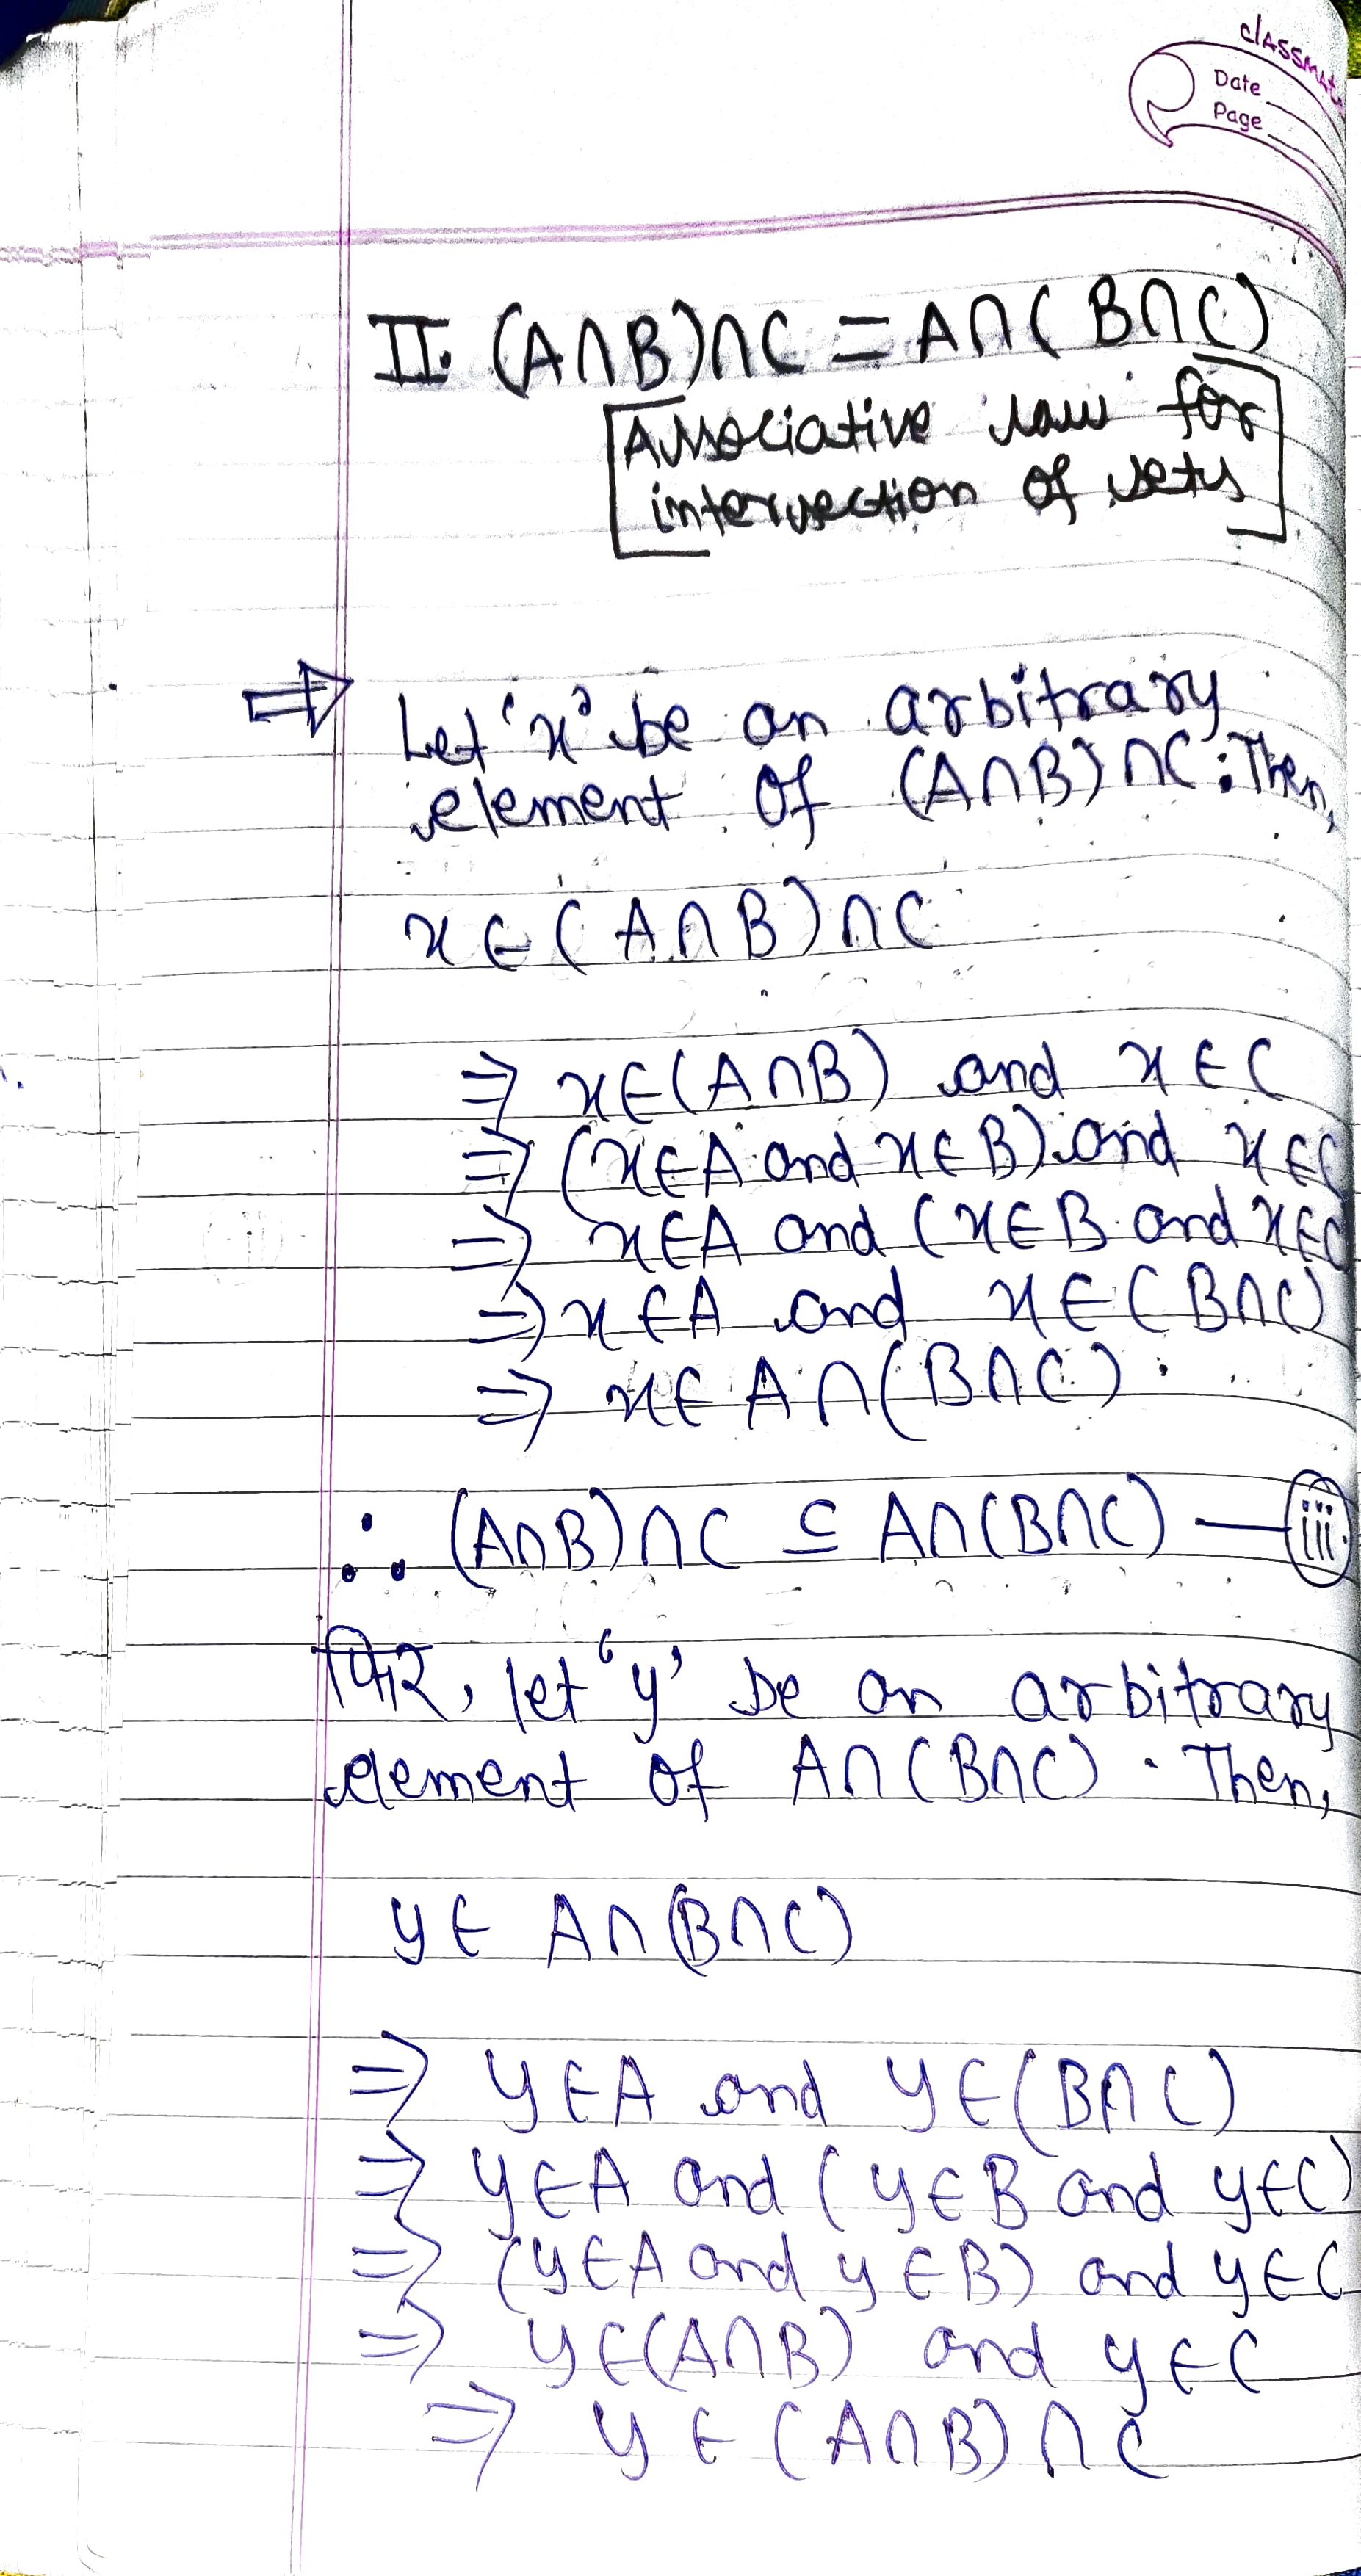 classmate
Date
Page
II. (A∩B)∩C = A∩(B∩C)
[Associative law for
intersection of sets]
⇒ Let 'x' be an arbitrary
element of (A∩B)∩C. Then,
x∈(A∩B)∩C
⇒ x∈(A∩B) and x∈C
⇒ (x∈A and x∈B) and x∈C
⇒ x∈A and (x∈B and x∈C
⇒ x∈A and x∈(B∩C)
⇒ x∈A∩(B∩C)
∴ (A∩B)∩C ⊆ A∩(B∩C) — (iii)
फिर, let 'y' be an arbitrary
element of A∩(B∩C). Then,
y∈ A∩(B∩C)
⇒ y∈A and y∈(B∩C)
⇒ y∈A and (y∈B and y∈C)
⇒ (y∈A and y∈B) and y∈C
⇒ y∈(A∩B) and y∈C
⇒ y∈(A∩B)∩C